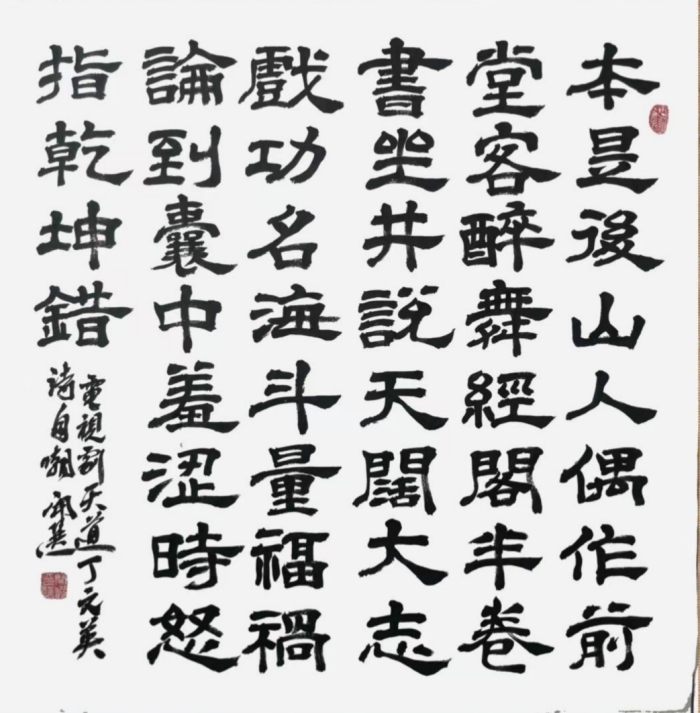 本是後山人偶作前
堂客醉舞經閣半卷
書坐井說天闊大志
戲功名海斗量福禍
論到囊中羞涩時怒
指乾坤錯
電視劇天道丁元英
詩自嘲